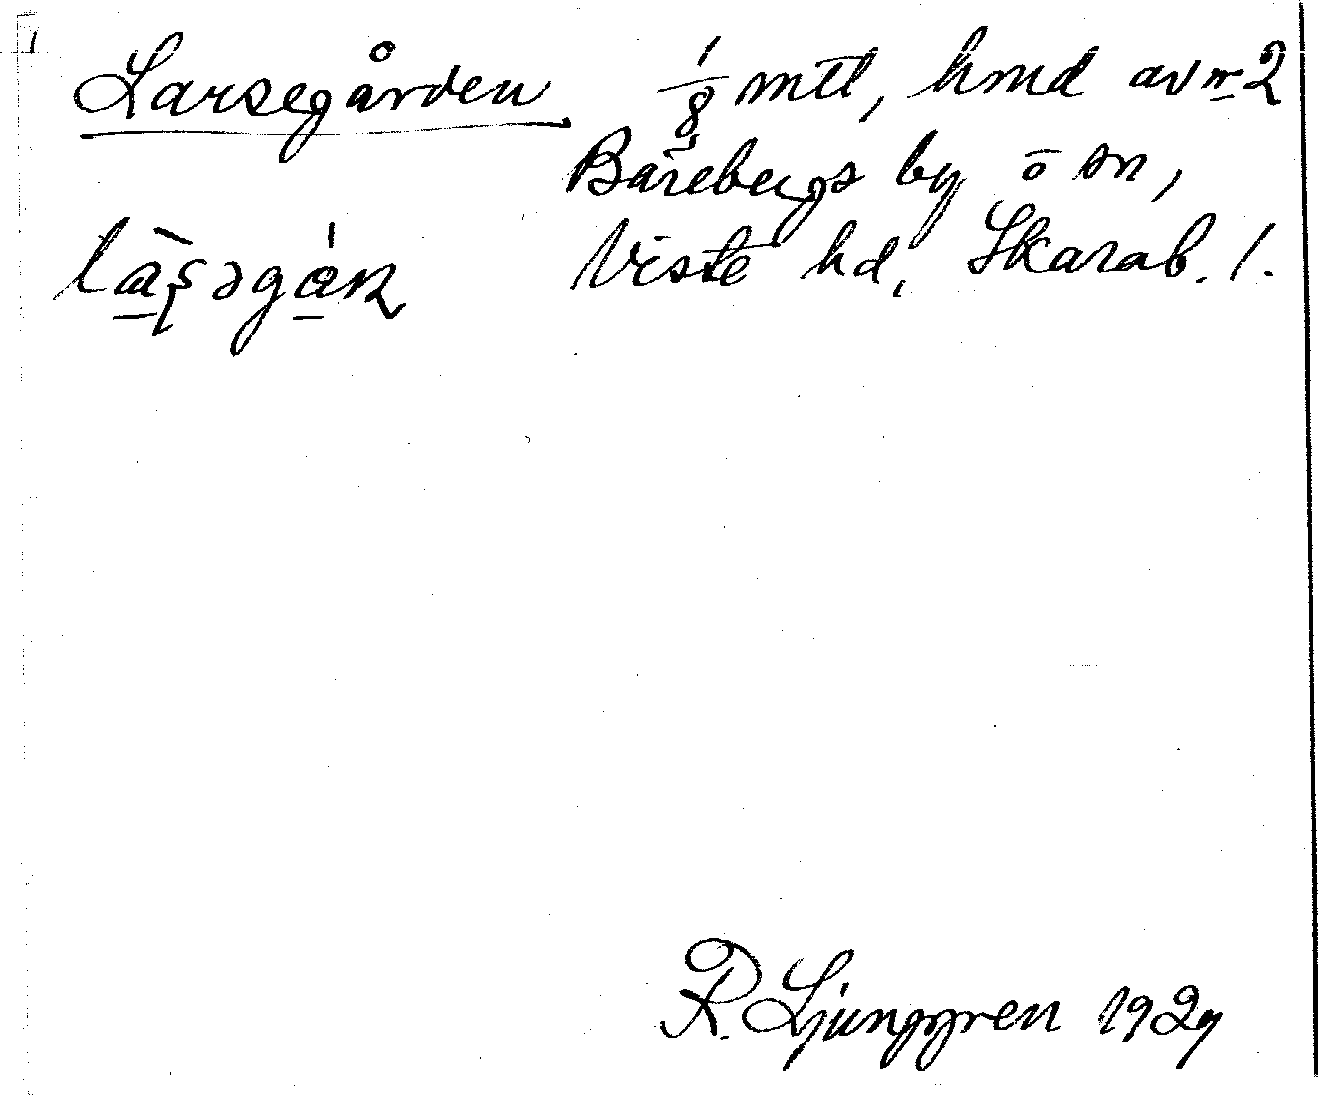 Larsegården 1/8 mtl, hmd av nr 2
Bärebergs by o sn,
Viste hd, Skarab. l.
R. Ljunggren 1929